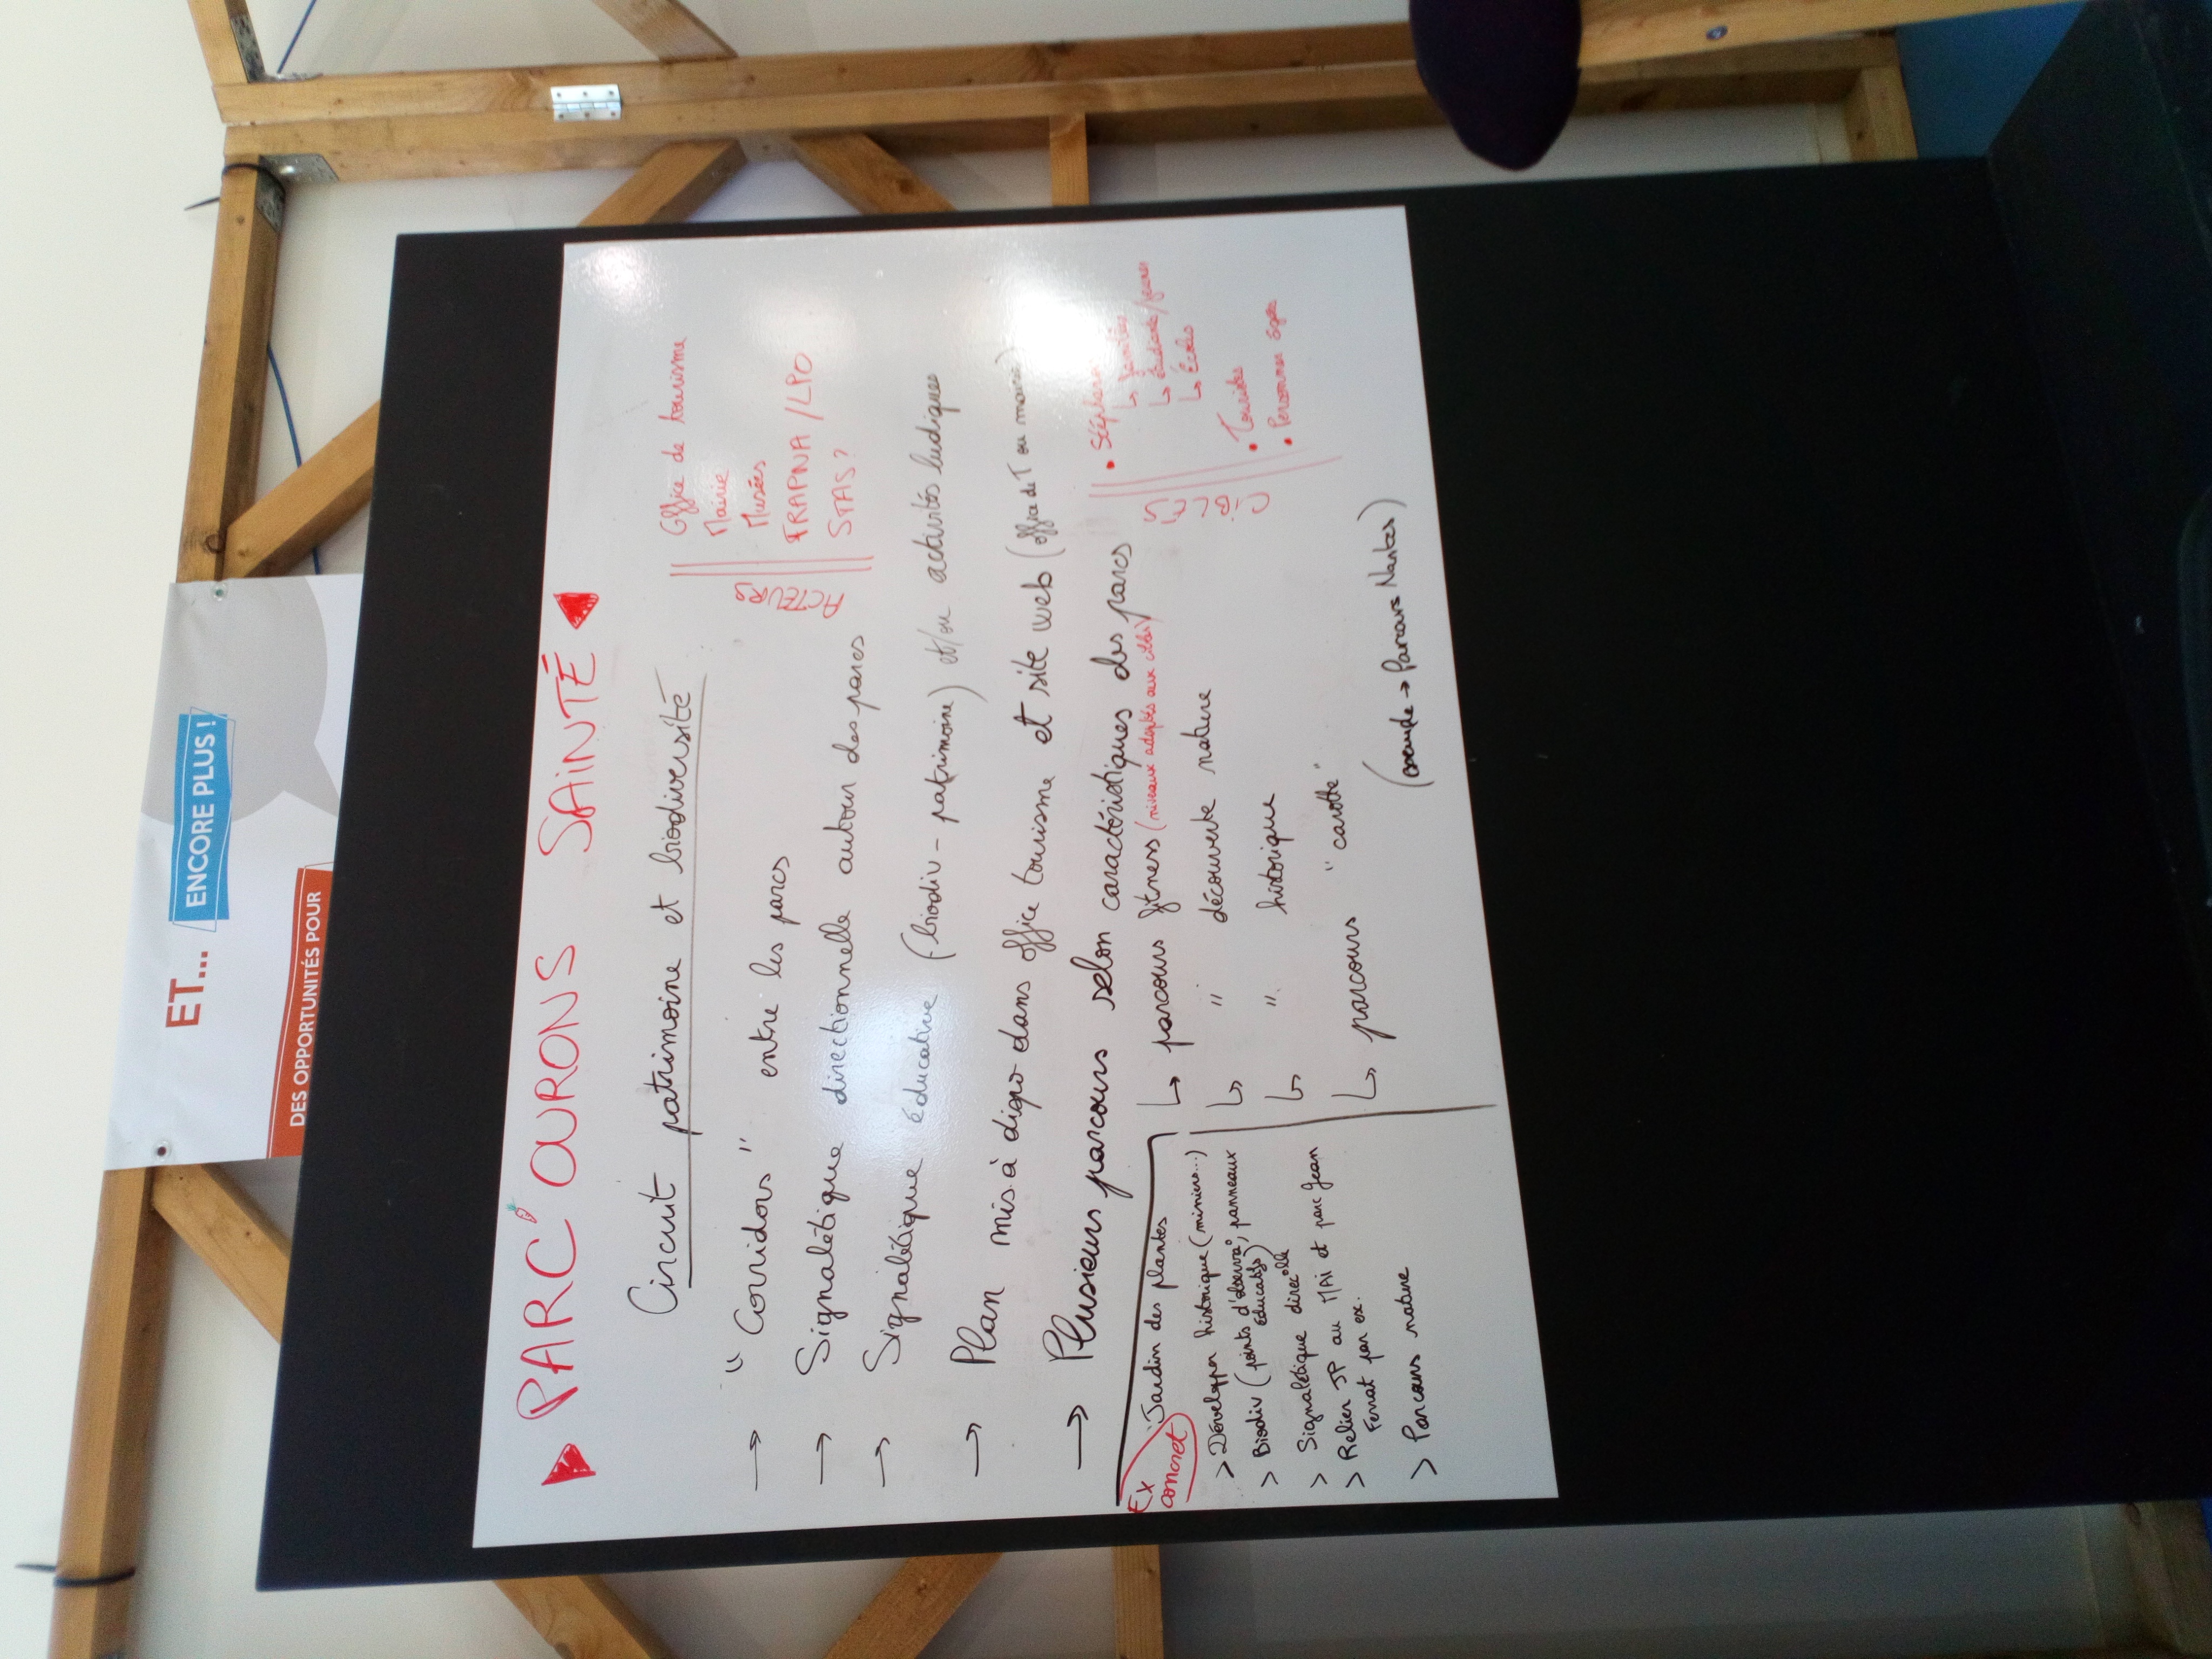 ET... ENCORE PLUS !
DES OPPORTUNITÉS POUR
PARC'OURONS SAINTÉ
Circuit patrimoine et biodiversité
→ "Corridors" entre les parcs
→ Signalétique directionnelle autour des parcs
→ Signalétique éducative (biodiv - patrimoine) et/ou activités ludiques
→ Plan mis à dispo dans office tourisme et site web (office de T ou mairie)
→ Plusieurs parcours selon caractéristiques des parcs
↳ parcours fitness (niveaux adaptés aux cibles)
↳ " découverte nature
↳ " historique
↳ parcours "carotte"
(exemple → Parcours Nantes)
ACTEURS
Office de tourisme
Mairie
Musées
FRAPNA / LPO
STAS ?
CIBLES
↳ familles
↳ étudiants/jeunes
↳ Écoles
• Touristes
• Personnes âgées
Ex concret
Jardin des plantes
> Développer historique (miniers...)
> Biodiv (points d'observa°, panneaux
éducatifs)
> Signalétique direc°lle
> Relier JP au MAI et parc Jean
Ferrat par ex.
> Parcours nature